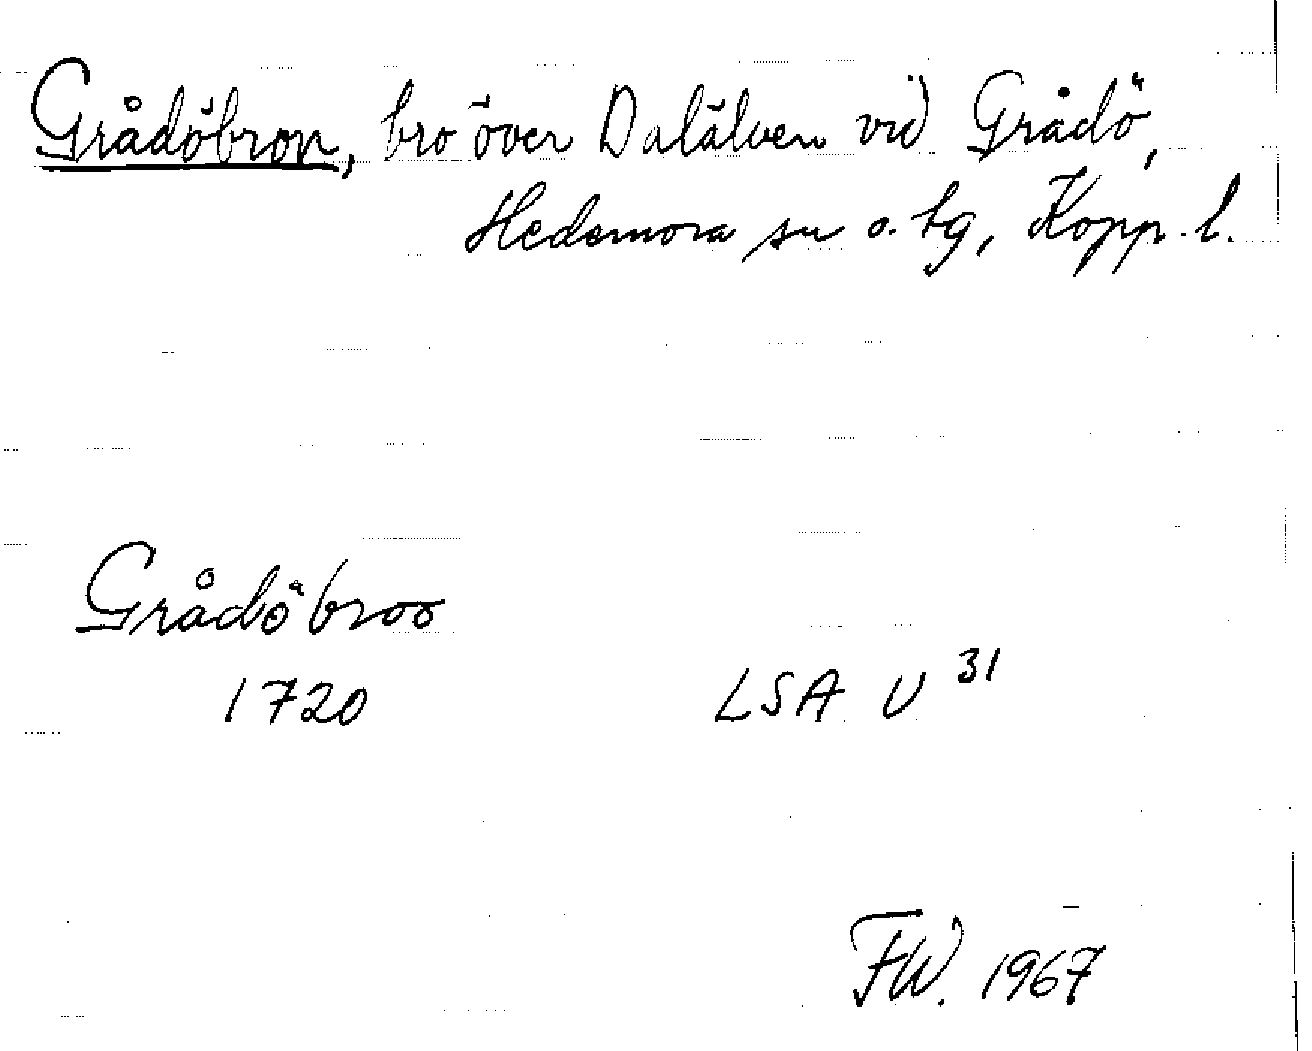 Grådöbron, bro över Dalälven vid Grådö,
Hedemora sn o. tg, Kopp. l.
Grådöbroo
1720 LSA U 31
FW. 1967